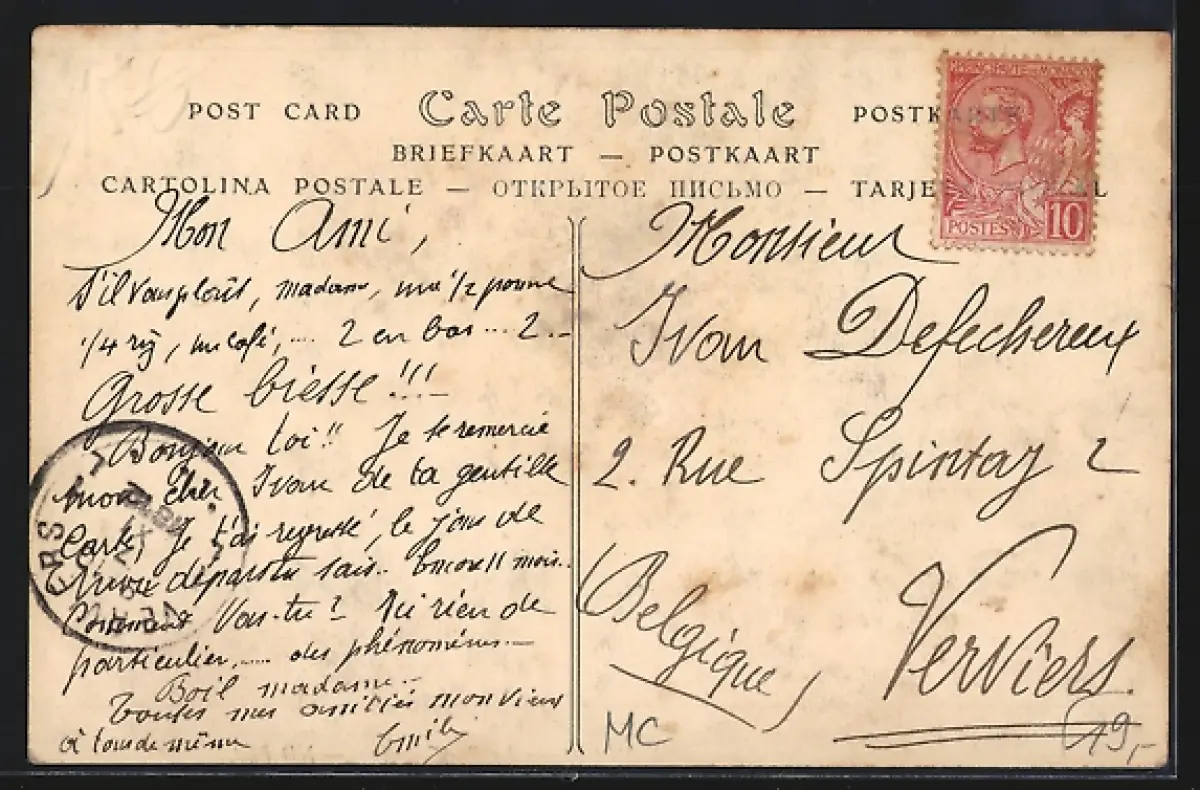 POST CARD Carte Postale POSTKARTE
BRIEFKAART — POSTKAART
CARTOLINA POSTALE — ОТКРЫТОЕ ПИСЬМО — TARJE L
PRINCIPAUTÉ DE MONACO
POSTES 10
Mon Ami,
S'il vous plait, madame, une 1/2 pomme
1/4 riz, un café, .... 2 en bas ... 2 ..
Grosse biesse !!!
Bonjour toi !! Je te remercie
mon cher Ivan de ta gentille
Carte, Je t'ai regretté, le jour de
départ tu sais.. Encore 11 mois..
Comment vas-tu ? Ici rien de
particulier, ..... des phénomènes..
Boil madame..
Toutes mes amitiés mon vieux
à tous de même Emile
Monsieur
Ivan Defechereux
2. Rue Spintay 2
Verviers.
Belgique,
MC
19,-
ERS
VERV